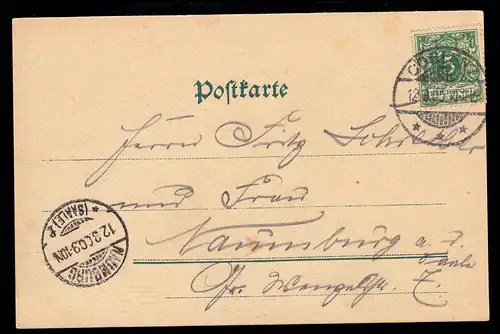 Postkarte
5
REICHSPOST
Herrn Fritz
und Frau
Naumburg a. d.
Saale
Gr. Wenzelstr. 7.
NAUMBURG
(SAALE)
12.3.00.9-10N